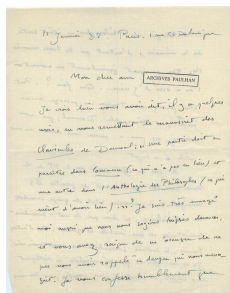 Janvier 37 Paris, 1 rue
Mon cher ami
ARCHIVES PAULHAN
Je crois bien vous avoir dit, il y a quelques
mois, en vous remettant le manuscrit des
Clavicules de Daumal, qu'une partie doit en
paraître dans Commune (ce qui n'a pas eu lieu) et
une autre dans l'Anthologie des Philosophes (ce qui
vient d'avoir lieu). Je suis très ennuyé
moi aussi que nous nous soyons
et vous avez raison de m'accuser de ne
pas vous avoir rappelé le danger qui nous
. Je vous confesse humblement que